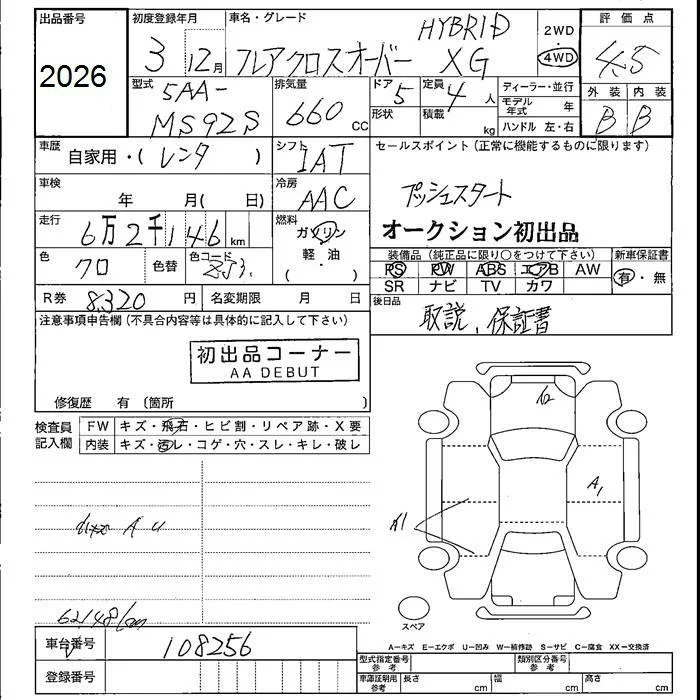 出品番号 2026
初度登録年月 3年12月
車名・グレード HYBRID
フレアクロスオーバー XG
2WD
4WD
評価点 4.5
外装 内装
B B
型式 5AA-
MS92S
排気量 660 CC
ドア 5
形状
定員 4 人
積載 kg
ディーラー・並行
モデル年式 年
ハンドル 左・右
車歴 自家用・( レンタ )
シフト IAT
セールスポイント(正常に機能するものに限ります)
プッシュスタート
オークション初出品
車検 年 月( 日)
冷房 AAC
走行 6万2千146 km
燃料 ガソリン
軽・油
( )
色 クロ
色替
色コード ZJ3
装備品(純正品に限り○をつけて下さい)
PS PW ABS エアB AW
SR ナビ TV カワ
新車保証書
有・無
R券 8320 円
名変期限 月 日
後日品
取説、保証書
注意事項申告欄(不具合内容等は具体的に記入して下さい)
初出品コーナー
AA DEBUT
修復歴 有〔箇所 〕
検査員記入欄
FW キズ・飛石・ヒビ割・リペア跡・X要
内装 キズ・汚レ・コゲ・穴・スレ・キレ・破レ
A U
62148km
G
A1
A1
スペア
車台番号 108256
登録番号
A−キズ E−エクボ U−凹み W−補修跡 S−サビ C−腐食 XX−交換済
型式指定番号 参考
類別区分番号 参考
車庫証明用 参考
長さ cm 幅 cm 高さ cm